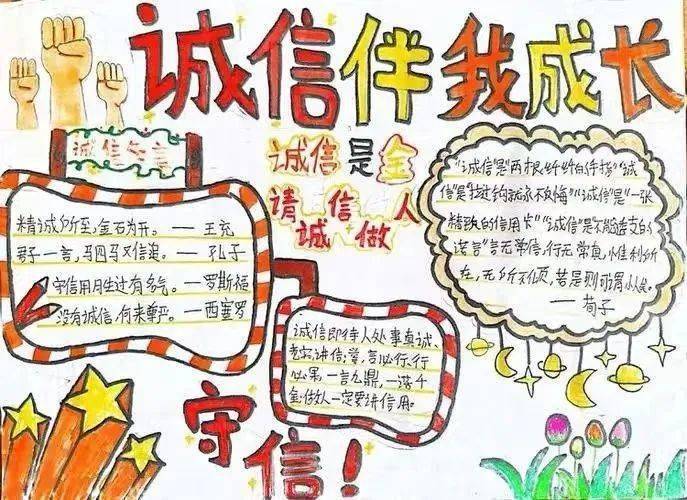 诚信伴我成长
诚信名言
诚信是金
请信人
诚做
精诚所至,金石为开。——王充
君子一言,驷马难追。——孔子
守信用胜过有名气。——罗斯福
没有诚信,何来尊严。——西塞罗
"诚信"是"两根纤纤白手指""诚
信"是"拉过钩就永不反悔""诚信"是"一张
精致的信用卡""诚信"是"不能透支的
谎言"言无常信,行无常真,惟利所
在,无所不倾,若是则可谓小人矣。
——荀子
诚信即待人处事真诚、
老实、讲信誉,言必行、行
必果,一言九鼎,一诺千
金,做人一定要讲信用。
守信!